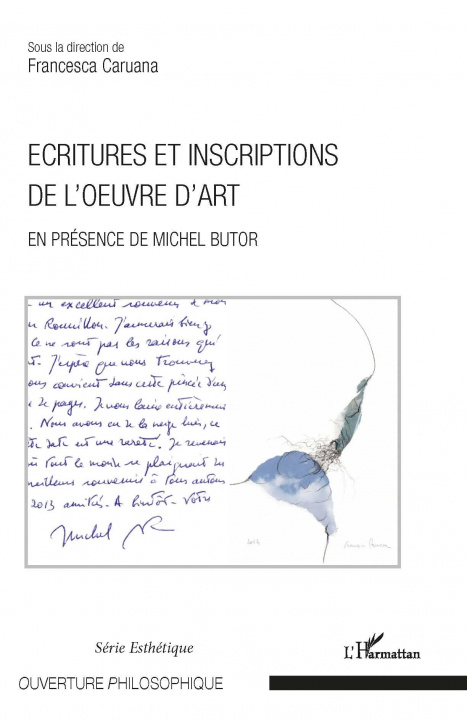 Sous la direction de
Francesca Caruana
ECRITURES ET INSCRIPTIONS
DE L'OEUVRE D'ART
EN PRÉSENCE DE MICHEL BUTOR
un excellent souvenir de mon
J'aimerais bien
ce ne sont pas les raisons qui
J'espère que nous
dans cette
de pages. Je vous laisse entièrement
Nous avons eu de la neige hier, ce
est une rareté. Je reviens
tout le monde se plaignant
meilleurs souvenirs à tous autour
2013 amitiés. A bientôt. Votre
Michel
2013
Série Esthétique
L'Harmattan
OUVERTURE PHILOSOPHIQUE